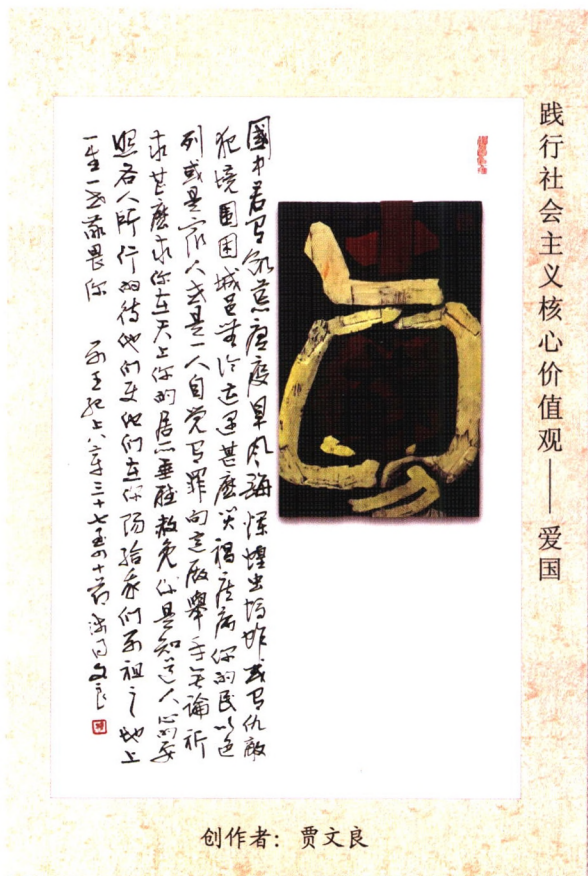 践行社会主义核心价值观——爱国
國中若有飢荒瘟疫旱风霉爛蝗虫螞蚱或有仇敵
犯境围困城邑無论遭遇甚麽災禍疾病你的民以色
列或是众人或是一人自觉有罪向這殿舉手無論祈
求甚麽求你在天上你的居所垂聽赦免你是知道人心的要
照各人所行的待他们使他们在你賜给我们列祖之地上
一生一世敬畏你 列王紀上八章三十七至四十節 文良
创作者：贾文良